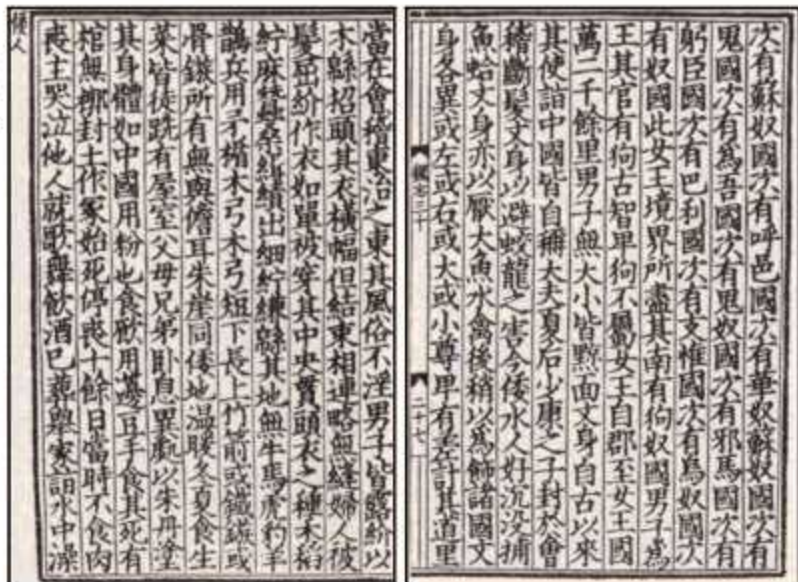 次有蘇奴國次有呼邑國次有華奴蘇奴國次有
鬼國次有為吾國次有鬼奴國次有邪馬國次有
躬臣國次有巴利國次有支惟國次有烏奴國次
有奴國此女王境界所盡其南有狗奴國男子為
王其官有狗古智卑狗不屬女王自郡至女王國
萬二千餘里男子無大小皆黥面文身自古以來
其使詣中國皆自稱大夫夏后少康之子封於會
稽斷髮文身以避蛟龍之害今倭水人好沉沒捕
魚蛤文身亦以厭大魚水禽後稍以為飾諸國文
身各異或左或右或大或小尊卑有差計其道里
魏志三十
二十七
當在會稽東治之東其風俗不淫男子皆露紒以
木緜招頭其衣橫幅但結束相連略無縫婦人被
髮屈紒作衣如單被穿其中央貫頭衣之種禾稻
紵麻蠶桑緝績出細紵縑緜其地無牛馬虎豹羊
鵲兵用矛楯木弓木弓短下長上竹箭或鐵鏃或
骨鏃所有無與儋耳朱崖同倭地溫暖冬夏食生
菜皆徒跣有屋室父母兄弟臥息異處以朱丹塗
其身體如中國用粉也食飲用籩豆手食其死有
棺無槨封土作冢始死停喪十餘日當時不食肉
喪主哭泣他人就歌舞飲酒已葬舉家詣水中澡
倭人